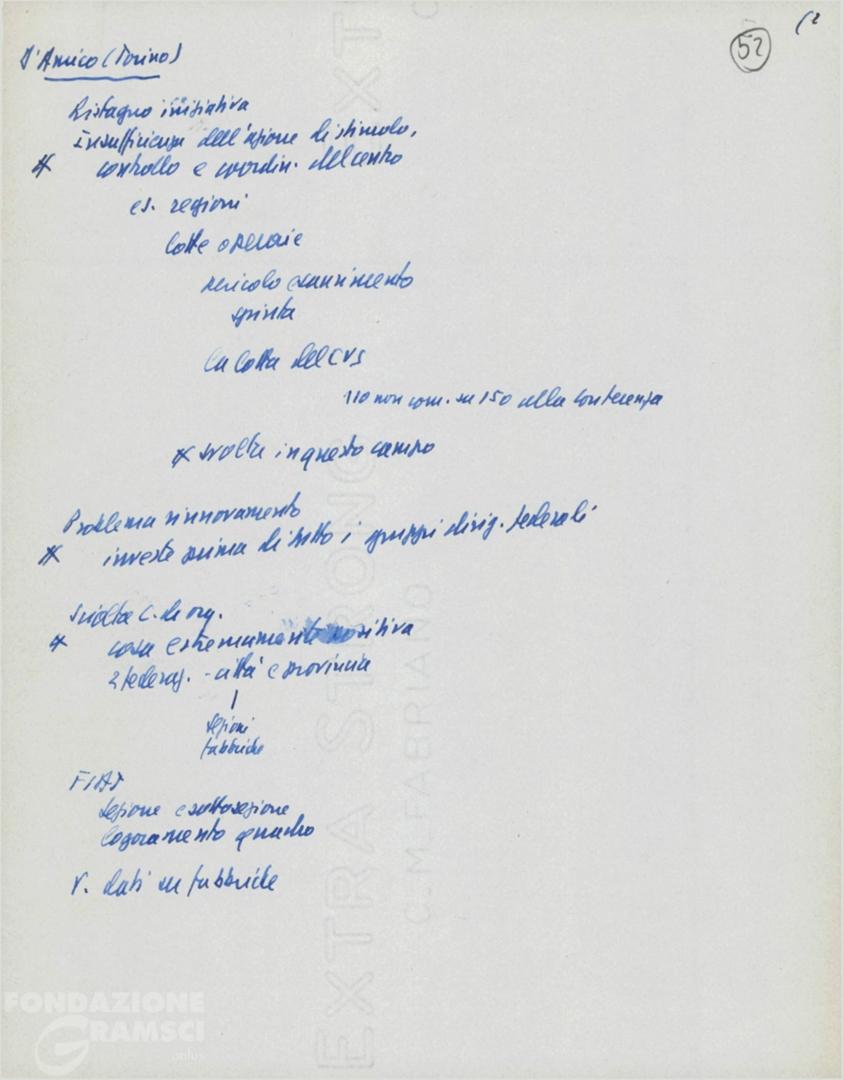 52
D'Amico (Torino)
Ristagno iniziativa
Insufficienza dell'azione di stimolo,
controllo e coordin. del centro
es. regioni
lotte operaie
pericolo esaurimento
spinta
la lotta del CVS
110 non com. su 150 alla conferenza
svolta in questo campo
Problema rinnovamento
investe prima di tutto i gruppi dirig. federali
Svolta C. di org.
cosa estremamente positiva
2 federaz. - città e provincia
Sezioni
fabbriche
FIAT
Sezione e sottosezione
logoramento quadro
V. dati su fabbriche
EXTRA STRONG
C. M. FABRIANO
FONDAZIONE
GRAMSCI
onlus